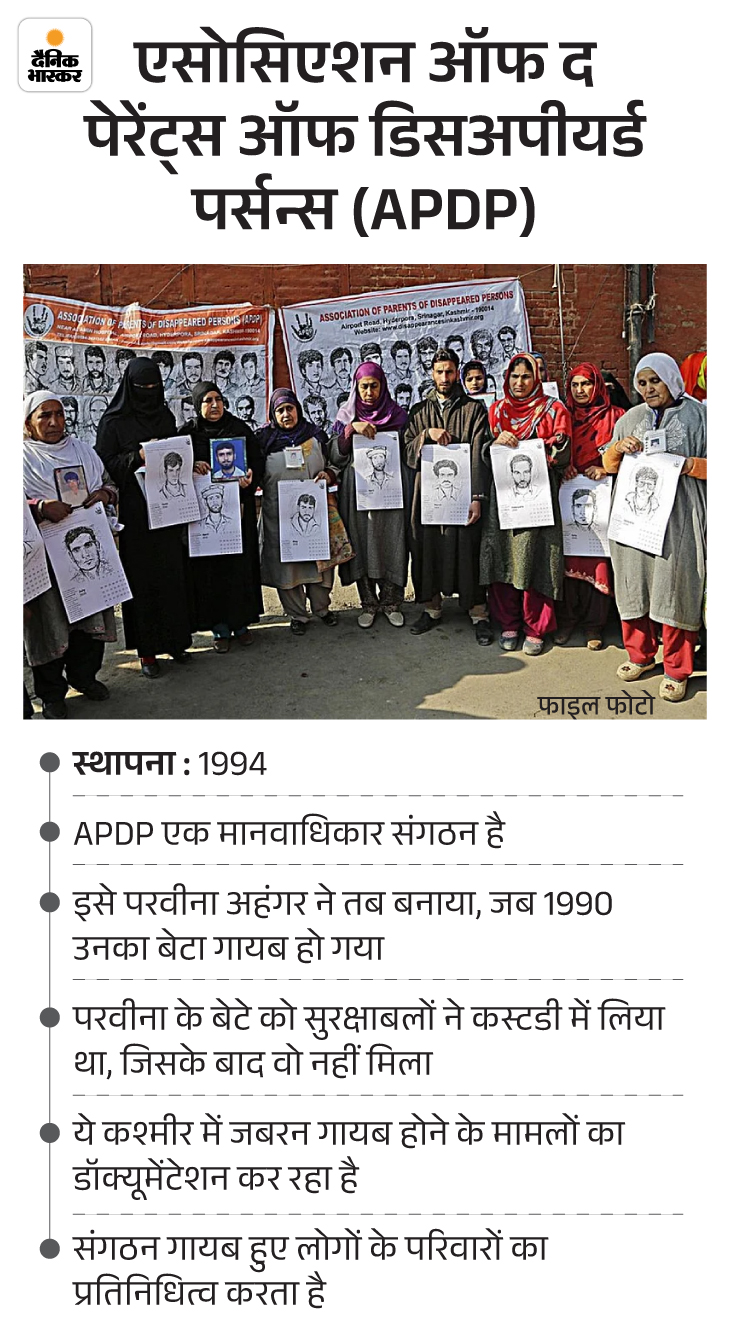 दैनिक
भास्कर
एसोसिएशन ऑफ द
पेरेंट्स ऑफ डिसअपीयर्ड
पर्सन्स (APDP)
ASSOCIATION OF PARENTS OF DISAPPEARED PERSONS (APDP)
ASSOCIATION OF PARENTS OF DISAPPEARED PERSONS
Airport Road, Hyderpora, Srinagar, Kashmir - 190014
Website: www.disappearancesinkashmir.org
फाइल फोटो
स्थापना : 1994
APDP एक मानवाधिकार संगठन है
इसे परवीना अहंगर ने तब बनाया, जब 1990
उनका बेटा गायब हो गया
परवीना के बेटे को सुरक्षाबलों ने कस्टडी में लिया
था, जिसके बाद वो नहीं मिला
ये कश्मीर में जबरन गायब होने के मामलों का
डॉक्यूमेंटेशन कर रहा है
संगठन गायब हुए लोगों के परिवारों का
प्रतिनिधित्व करता है